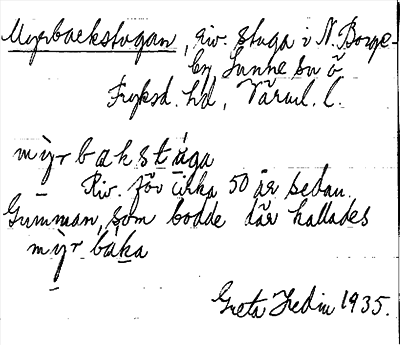 Myrbackstugan, riv. stuga i N. Borge-
by, Sunne sn ö
Fryksd. hd, Värml. l.
mỳr bakstuga
Riv. för cirka 50 år sedan.
Gumman, som bodde där kallades
mỳr baka
Greta Hedin 1935.